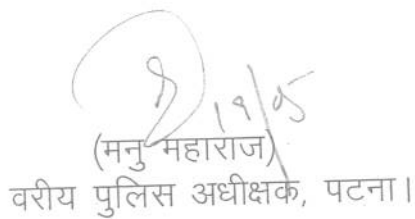 19/05
(मनु महाराज)
वरीय पुलिस अधीक्षक, पटना।